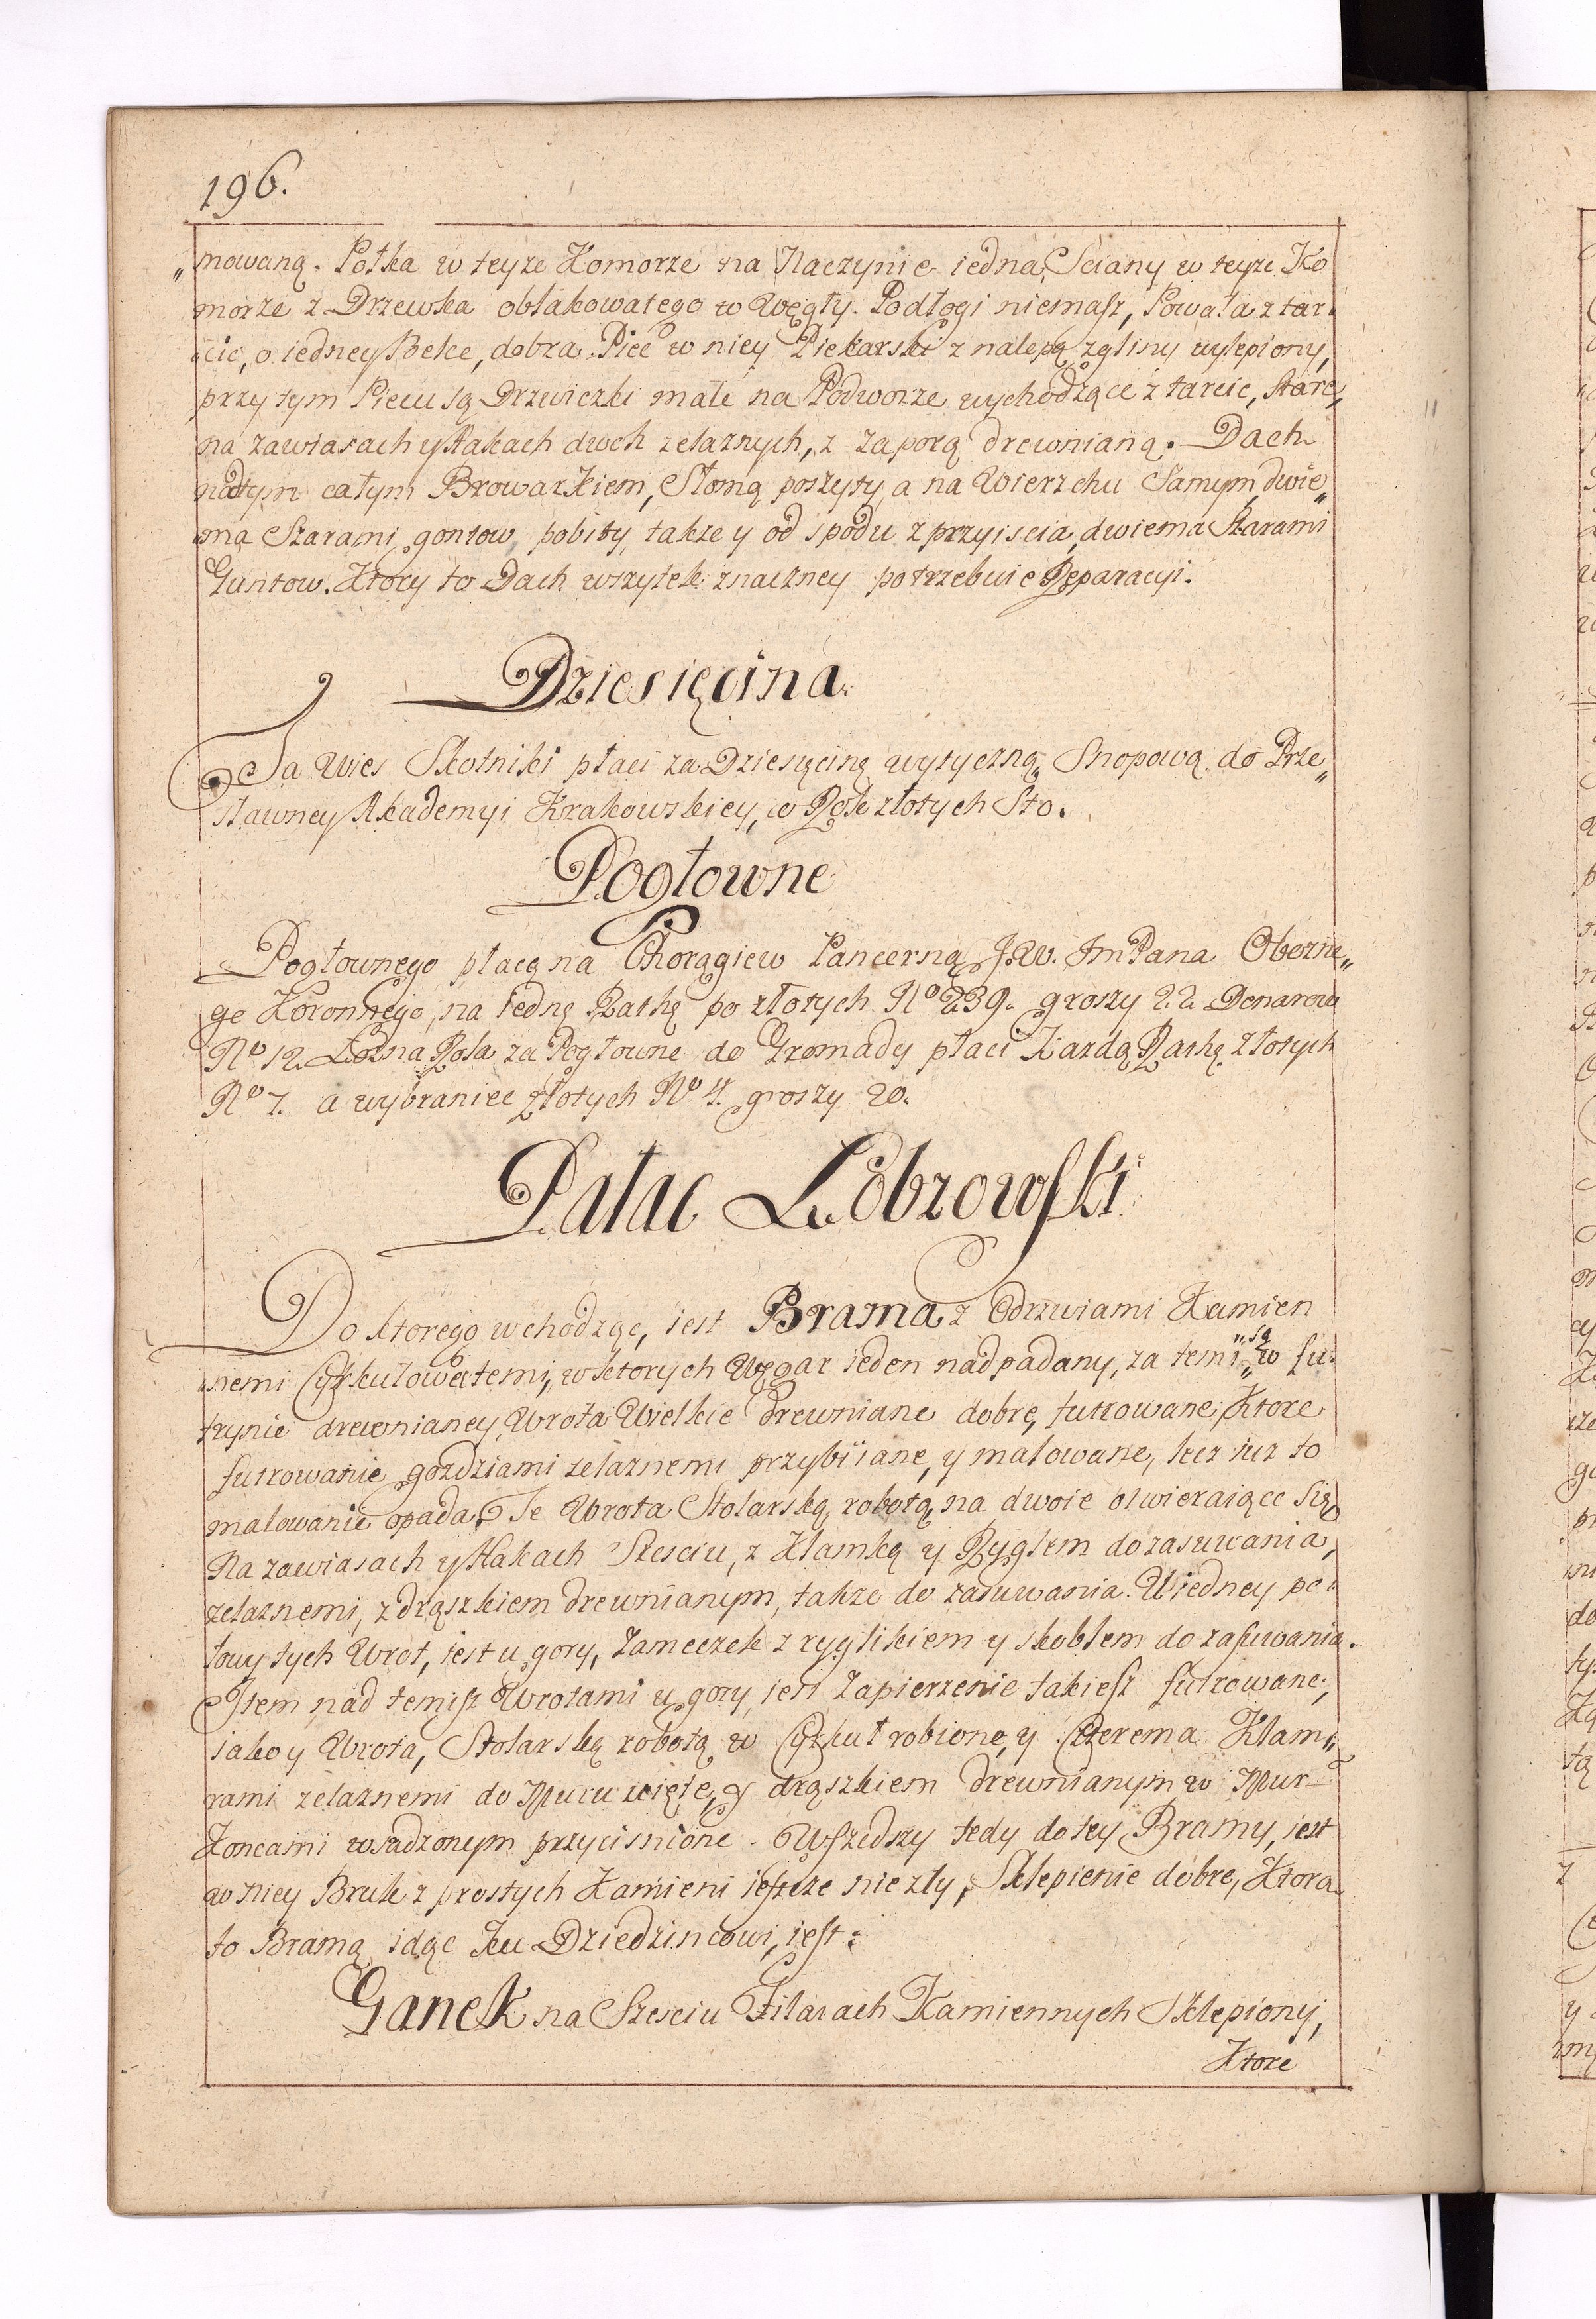 196.
„mowaną. Połka w teyze Komorze na Naczynie iedna, Sciany w teyze Ko
morze z Drzewka obłakowatego w Węgły. Podłogi niemasz, Powała z tar„
„cic, o iedney Belce, dobra. Piec w niey Piekarski z nalepą z gliny wylepiony,
przy tym Piecu są Drzwiczki małe na Podworze wychodzące z tarcic, stare,
na zawiasach y Hakach dwoch zelaznych, z zaporą drewnianą. Dach
nad tym całym Browarkiem, Słomą poszyty, a na Wierzchu Samym, dwie„
„ma Szarami gontow pobity, takze y od spodu z przyiscia, dwiema Szarami
Guntow. Ktory to Dach wszytek znaczney potrzebuie Reparacyi.
Dziesięcina.
Ta Wies Skotniki płaci za Dziesięcinę wytyczną, Snopową do Prze„
sławney Akademyi Krakowskiey, w Rok złotych Sto.
Pogłowne
Pogłownego płacą na Chorągiew Pancerną J.W. JmPana Obozne„
go Koronnego, na iedną Ratę po złotych No 239. groszy 22. Denarow
No 12. Lozna Rola za Pogłowne do Gromady płaci Kazdą Ratę złotych
No 7. a wybraniec złotych No 4. groszy 20.
Pałac Łobzowski
Do ktorego wchodząc, iest Brama z Odrzwiami Kamien
„nemi Cyrkułowatemi, w ktorych Węgar ieden nadpadany, za temi „są„ w fu„
trynie drewnianey, Wrota Wielkie drewniane dobre, futrowane, Ktore
futrowanie gozdziami zelaznemi przybiiane, y malowane, lecz iuz to
malowanie opada. Te Wrota Stolarską robotą, na dwoie otwieraiące się
Na zawiasach y Hakach Szesciu, z Klamką y Ryglem do zasuwania,
zelaznemi, z drąszkiem drewnianym, takze do zasuwania. W iedney po„
łowy tych Wrot, iest u gory, Zameczek z ryglikiem y skoblem do zasuwania.
Item nad temisz Wrotami u gory iest Zapierzenie takiesz futrowane,
iako y Wrota, Stolarską robotą w Cyrkuł robione, y Czterema Klam„
rami zelaznemi do Muru wzięte, y drąszkiem drewnianym w Mur
Koncami wsadzonym przycisnione. Wszedszy tedy do tey Bramy, iest
w niey Bruk z prostych Kamieni ieszcze niezły, Sklepienie dobre, Ktorą
to Bramą idąc Ku Dziedzincowi, iest:
Ganek na Szesciu Filarach Kamiennych Sklepiony,
Ktore